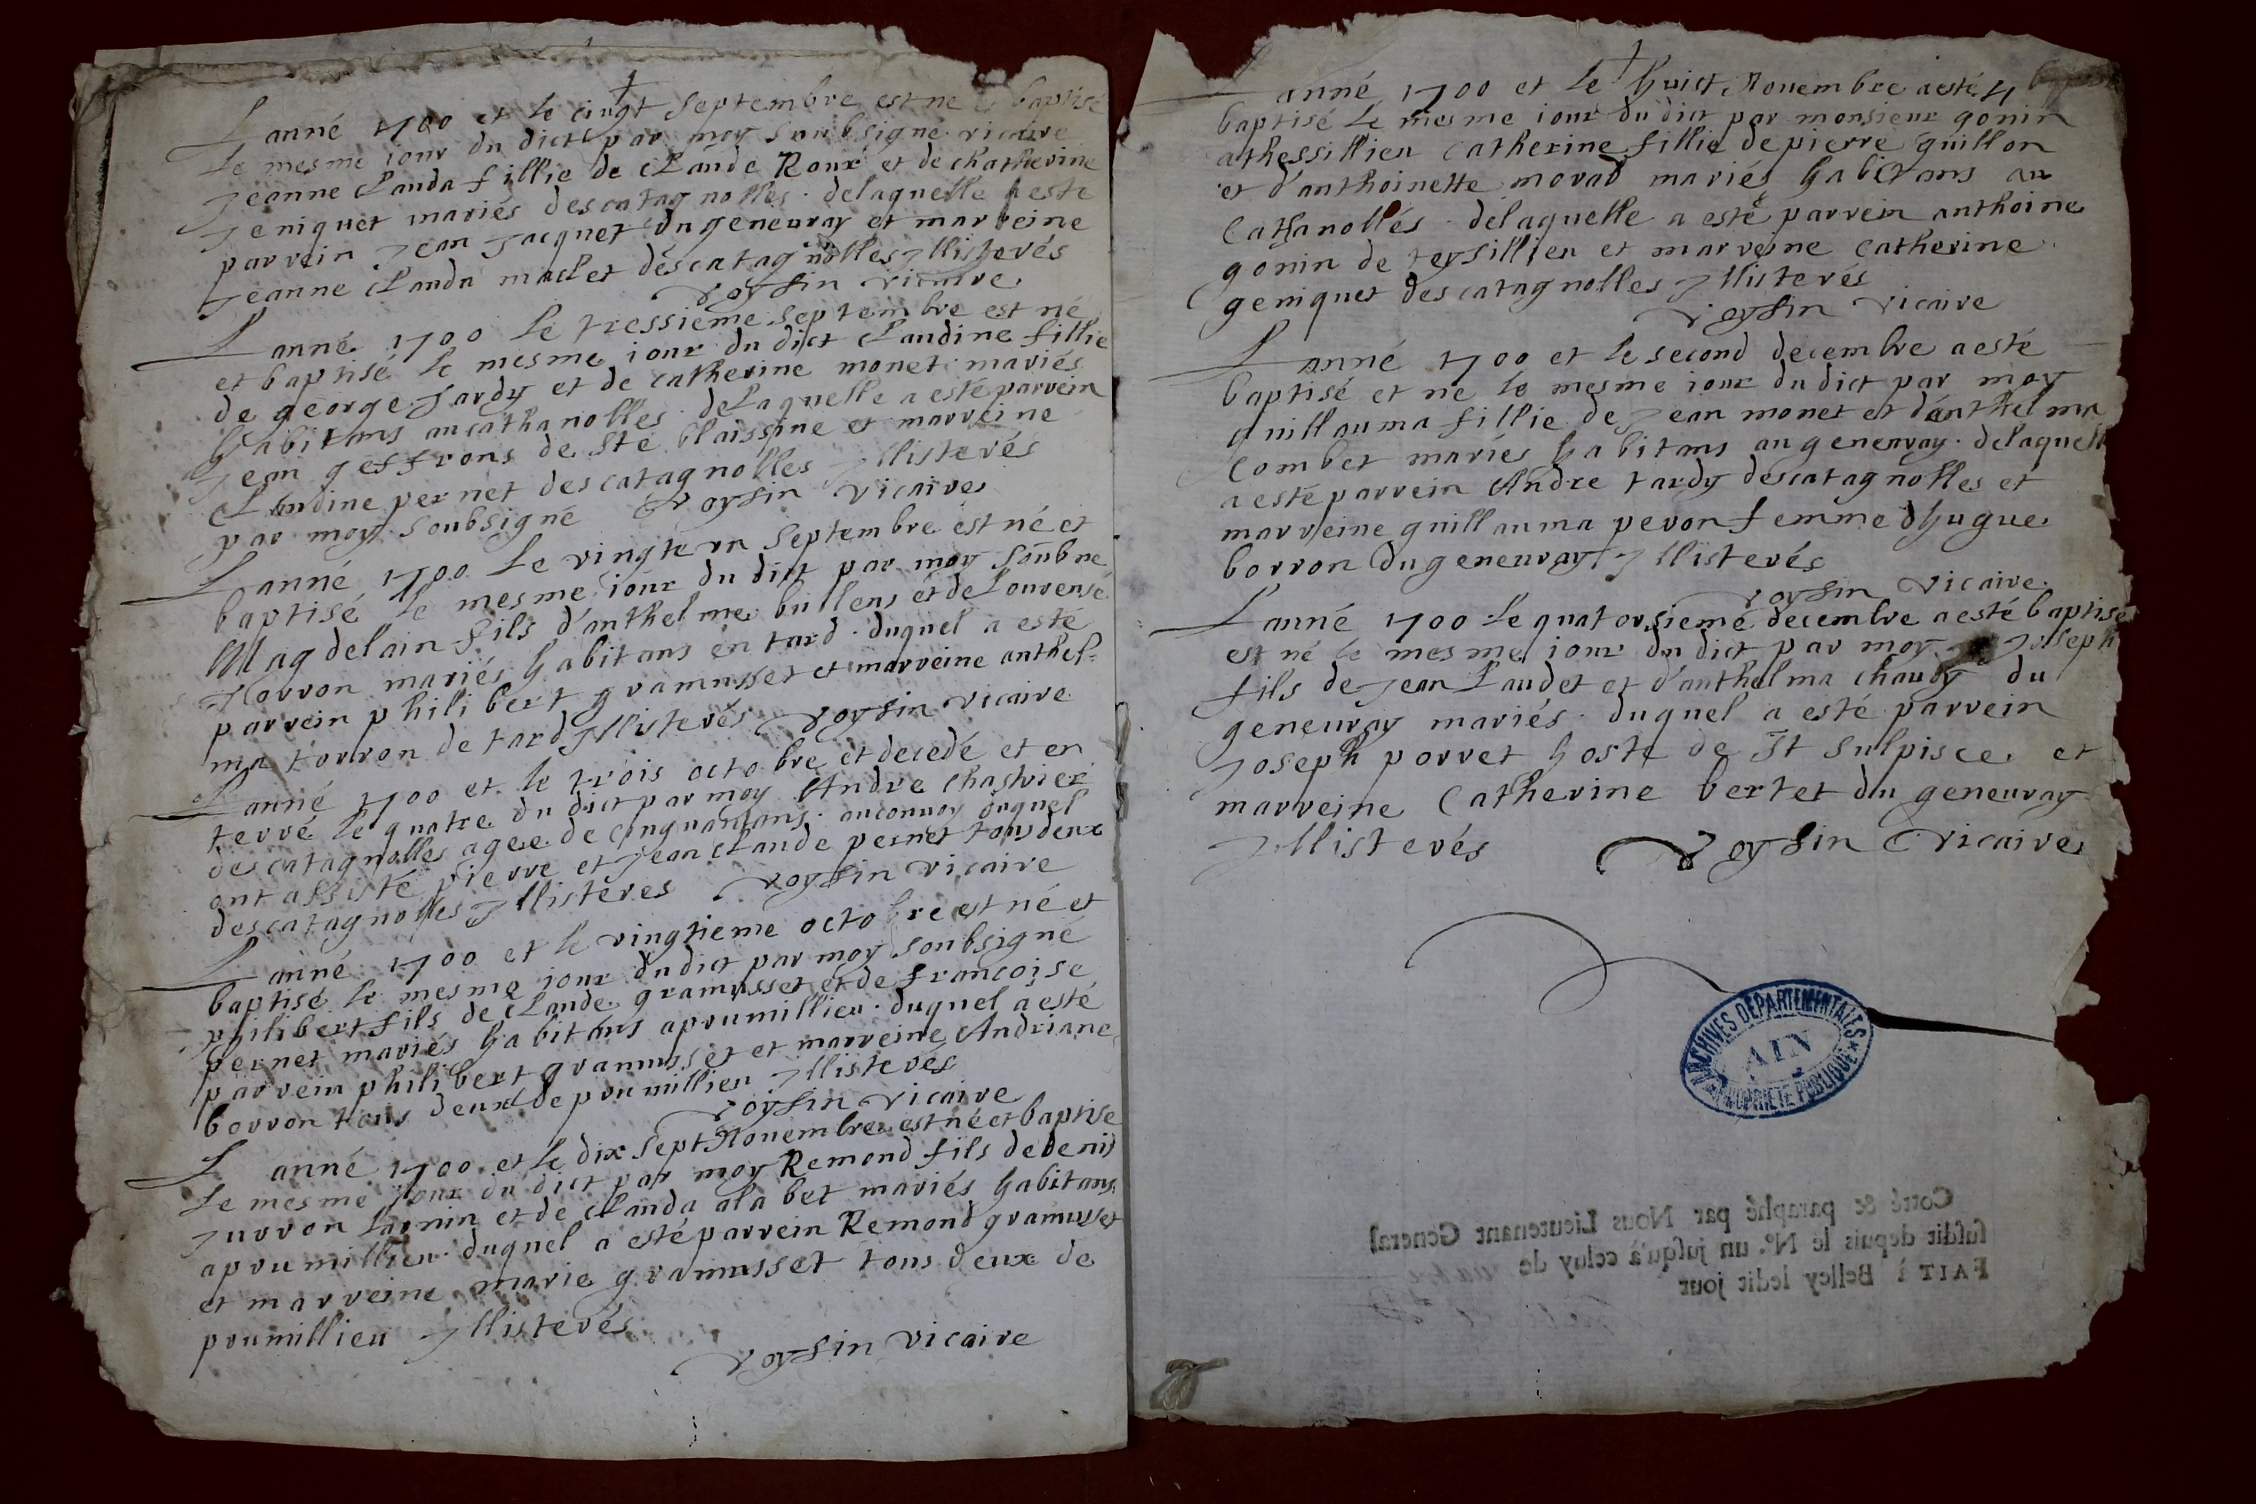 L anné 1700 et le cinqt Septembre est ne et baptisé
le mesme jour du dict par moy soubsigné vicaire
Jeanne Clauda fillie de Claude Roux et de Chatherine
Jeniquet mariés descatagnolles. delaquelle a este
parrein Jean Jacquet du geneuray et marreine
Jeanne Clauda maclet descatagnolles Illisterés
Voysin vicaire
L anné 1700 le tressieme septembre est né
et baptisé le mesme iour du dict Claudine fillie
de george Jardy et de catherine monet mariés
habitans aucathanolles. delaquelle a esté parrein
Jean geffrons de Ste blaissine et marreine
Claudine pernet descatagnolles Illisterés
par moy soubsigné Voysin vicaire
L anné 1700 le vingtern Septembre est né et
baptisé le mesme iour du dict par moy soubne
Magdelain fils d'anthelme bullens et de Lourense
Horron mariés habitans en tard. duquel a esté
parrein philibert gramusset et marreine anthel=
ma torron de tard Illisterés Voysin vicaire
L anné 1700 et le trois octobre et decedé et en
terré le quatre du dict par moy Andre Chastrier
descatagnolles agee de cinquantans. auconuoy duquel
ont assisté pierre et Jean Claude pernet tous deux
descatagnolles Illisteres Voysin vicaire
L anné 1700 et le vingtieme octobre est né et
baptisé le mesme iour du dict par moy soubsigné
philibert fils de Claude gramusset et de francoise
pernet mariés habitans aprumillieu. duquel a esté
parrein philibert gramusset et marreine Andriane
borron tous deux de prumillieu Illisterés
Voysin vicaire
L anné 1700 et le dix sept Nouembre est né et baptise
le mesme jour du dict par moy Remond fils de denis
Jurron Larnin et de Clauda alabet mariés habitans
aprumillieu. duquel a esté parrein Remond gramusset
et marreine marie gramusset tous deux de
prumillieu Illisterés
Voysin vicaire
L anné 1700 et le huict Nouembre a esté
baptisé le mesme iour du dict par monsieur gonin
athessillieu Catherine fillie de pierre guillon
et d'anthoinette morad mariés habitans au
Cathanollés. delaquelle a esté parrein anthoine
gonin de teysillieu et marreine Catherine
geniquet descatagnolles Illisterés
Voysin vicaire
L anné 1700 et le second decembre a esté
baptisé et ne le mesme iour du dict par moy
guillauma fillie de Jean monet et d'anthelma
Combet mariés habitans augeneuray. delaquelle
a esté parrein Andre tardy descatagnolles et
marreine guillauma peron femme dhugue
borron du geneuray Illisterés
Voysin vicaire
L anné 1700 le quatorsieme decembre a esté baptisé
est né le mesme iour du dict par moy Joseph
fils de Jean Laudet et d'anthelma chauby du
geneuray mariés. duquel a esté parrein
Joseph porret hoste de St Sulpisce et
marreine Catherine bertet du geneuray
Illisterés Voysin vicaire
ARCHIVES DEPARTEMENTALES
AIN
PROPRIETE PUBLIQUE
Cotté & paraphé par Nous Lieutenant General
susdit depuis le N°. un jusqu'à celuy de
FAIT à Belley ledit jour